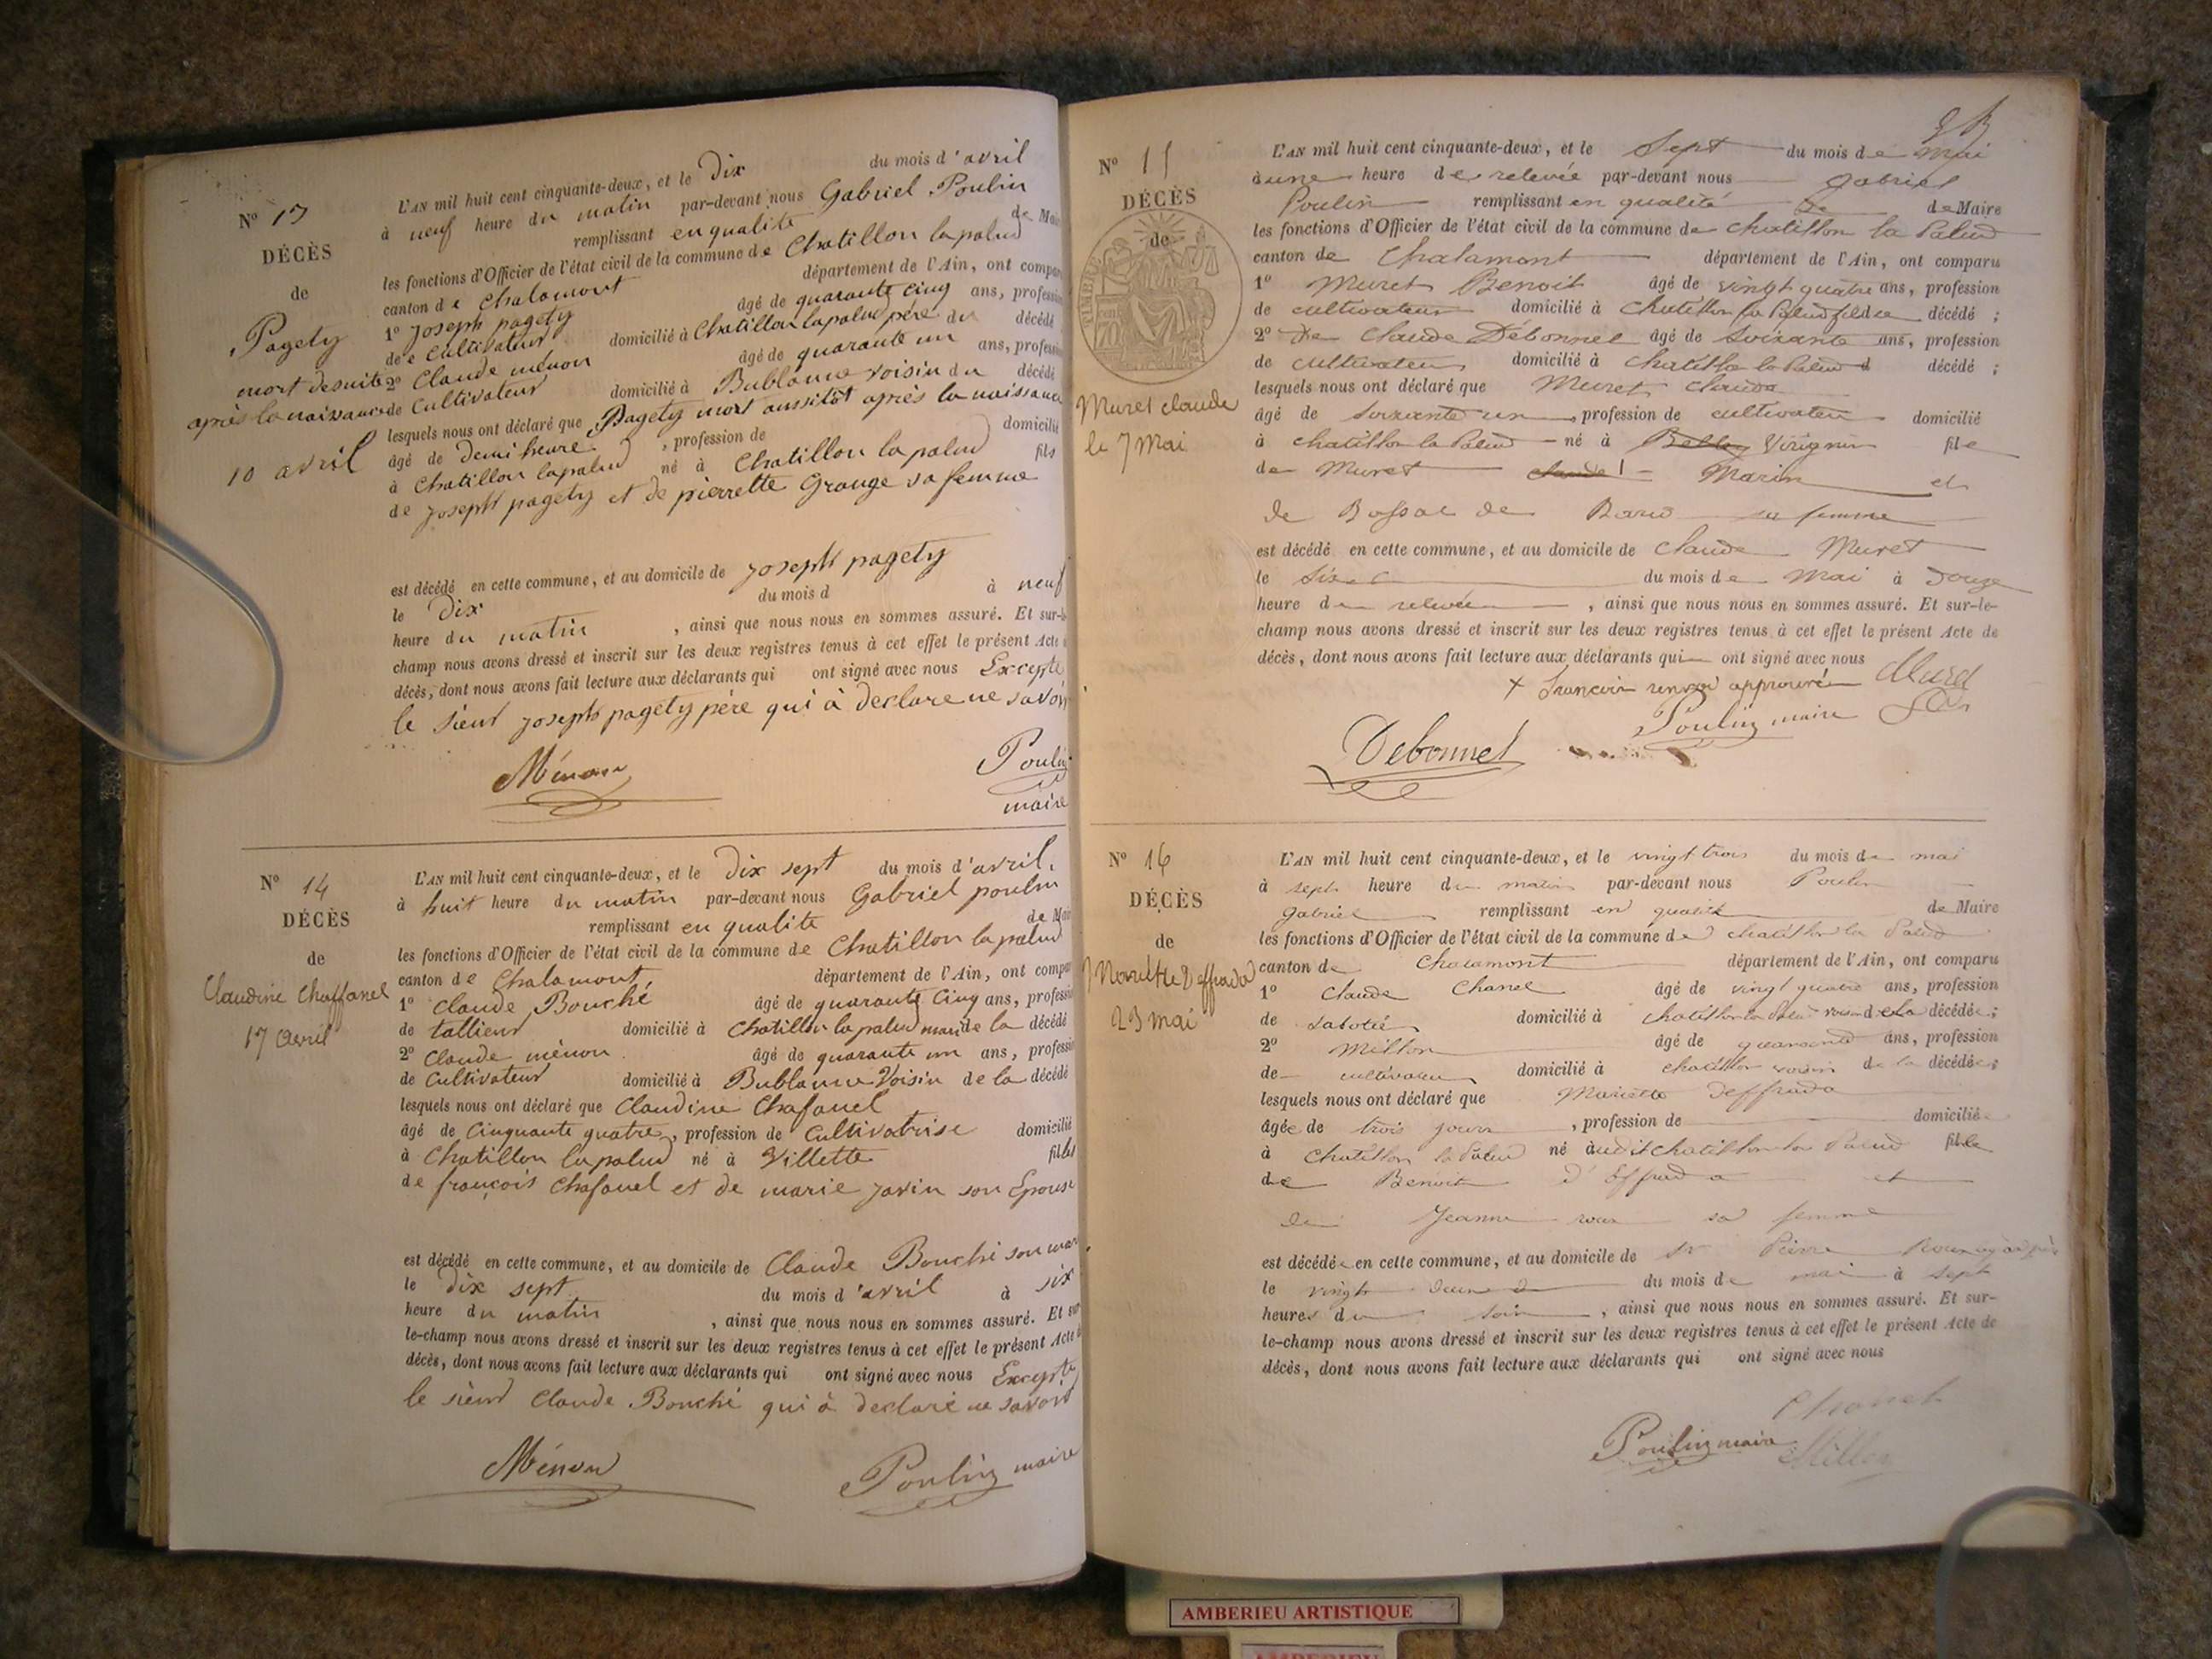 N° 13
DÉCÈS
de
Pagety
mort desuite
après la naissance
10 avril
L'AN mil huit cent cinquante-deux, et le Dix du mois d'avril
à neuf heure du matin par-devant nous Gabriel Poulin
remplissant en qualité de Mai
les fonctions d'Officier de l'état civil de la commune de Chatillon lapalud
canton de Chalamont département de l'Ain, ont compar
1° Joseph pagety âgé de quarante cinq ans, professi
de Cultivateur domicilié à Chatillon lapalud père du décédé
2° Claude ménon âgé de quarante un ans, professi
de Cultivateur domicilié à Bublanne voisin du décédé
lesquels nous ont déclaré que Pagety mort aussitôt après la naissance
âgé de Demi heure , profession de domicilié
à Chatillon lapalud né à Chatillon la palud fils
de Joseph pagety et de pierrette Grange sa femme
est décédé en cette commune, et au domicile de Joseph pagety
le Dix du mois d à neuf
heure du matin , ainsi que nous nous en sommes assuré. Et sur-l
champ nous avons dressé et inscrit sur les deux registres tenus à cet effet le présent Acte
décès, dont nous avons fait lecture aux déclarants qui ont signé avec nous Excepte
le sieur Joseph pagety père qui à declare ne savoir
Ménon Poulin
maire
N° 14
DÉCÈS
de
Claudine Chaffanel
17 avril
L'AN mil huit cent cinquante-deux, et le Dix sept du mois d'avril.
à huit heure du matin par-devant nous Gabriel poulin
remplissant en qualite de Mai
les fonctions d'Officier de l'état civil de la commune de Chatillon lapalud
canton de Chalamont département de l'Ain, ont compa
1° Claude Bouché âgé de quarante Cinq ans, professi
de tallieur domicilié à Chatillon lapalud mari de la décédé
2° Claude ménon âgé de quarante un ans, professi
de Cultivateur domicilié à Bublanne Voisin de la décédé
lesquels nous ont déclaré que Claudine Chafanel
âgé de Cinquante quatre, profession de Cultivatrise domicilié
à Chatillon lapalud né à Villette fille
de françois Chafanel et de marie Javin son Epouse
est décédé en cette commune, et au domicile de Claude Bouché son mar
le Dix sept du mois d'avril à six
heure du matin , ainsi que nous nous en sommes assuré. Et sur
le-champ nous avons dressé et inscrit sur les deux registres tenus à cet effet le présent Acte d
décès, dont nous avons fait lecture aux déclarants qui ont signé avec nous Excepte
le sieur Claude Bouché qui à declaré ne savoir
Ménon Poulin maire
N° 15
DÉCÈS
de
TIMBRE
Muret Claude
le 7 Mai
L'AN mil huit cent cinquante-deux, et le Sept du mois de Mai
à une heure de relevée par-devant nous Gabriel
Poulin remplissant en qualité de de Maire
les fonctions d'Officier de l'état civil de la commune de Chatillon la Palud
canton de Chalamont département de l'Ain, ont comparu
1° Muret Benoit âgé de vingt quatre ans, profession
de cultivateur domicilié à Chatillon la Palud fils du décédé ;
2° De Claude Débonnel âgé de Soixante ans, profession
de cultivateur domicilié à Chatillon la Palud d décédé ;
lesquels nous ont déclaré que Muret Claude
âgé de soixante un , profession de cultivateur domicilié
à Chatillon la Palud né à Belley Virignin fils
de Muret Claude Marin et
de Bossac de sa femme
est décédé en cette commune, et au domicile de Claude Muret
le Six du mois de Mai à Douze
heure de relevée , ainsi que nous nous en sommes assuré. Et sur-le-
champ nous avons dressé et inscrit sur les deux registres tenus à cet effet le présent Acte de
décès, dont nous avons fait lecture aux déclarants qui ont signé avec nous
+ renvoi approuvé Muret
Poulin maire
Debonnel
N° 16
DÉCÈS
de
Mariette Deffrada
23 mai
L'AN mil huit cent cinquante-deux, et le vingt trois du mois de mai
à sept heure du matin par-devant nous Poulin
Gabriel remplissant en qualité de Maire
les fonctions d'Officier de l'état civil de la commune de Chatillon la Palud
canton de Chalamont département de l'Ain, ont comparu
1° Claude Chanel âgé de vingt quatre ans, profession
de Sabotié domicilié à Chatillon la Palud voisin de la décédée ;
2° Millon âgé de quarante ans, profession
de cultivateur domicilié à Chatillon voisin de la décédée ;
lesquels nous ont déclaré que Mariette Deffrada
âgée de trois jours , profession de domicilié
à Chatillon la Palud né à udit Chatillon la Palud fille
de Benoit D'Effrada et
de Jeanne roux sa femme
est décédée en cette commune, et au domicile de Sr Pierre Roux
le vingt deux du mois de mai à sept
heures du soir , ainsi que nous nous en sommes assuré. Et sur-
le-champ nous avons dressé et inscrit sur les deux registres tenus à cet effet le présent Acte de
décès, dont nous avons fait lecture aux déclarants qui ont signé avec nous
Chanel
Poulin maire Millon
AMBERIEU ARTISTIQUE
AMBERIEU